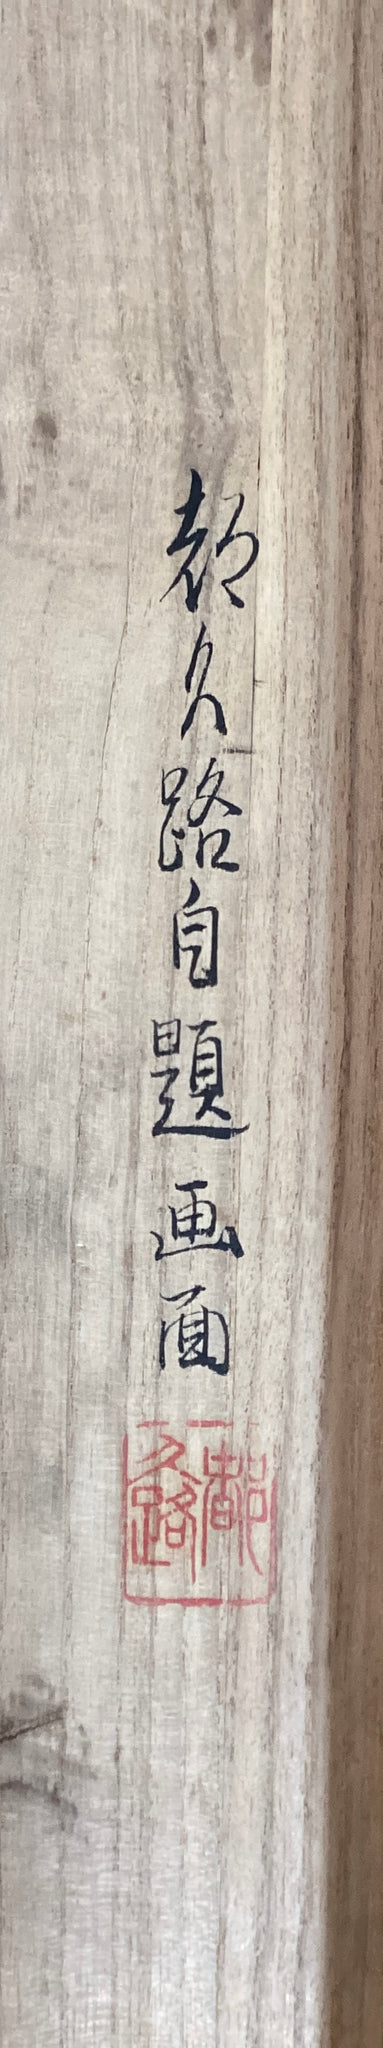 都久路自題画面
都久路